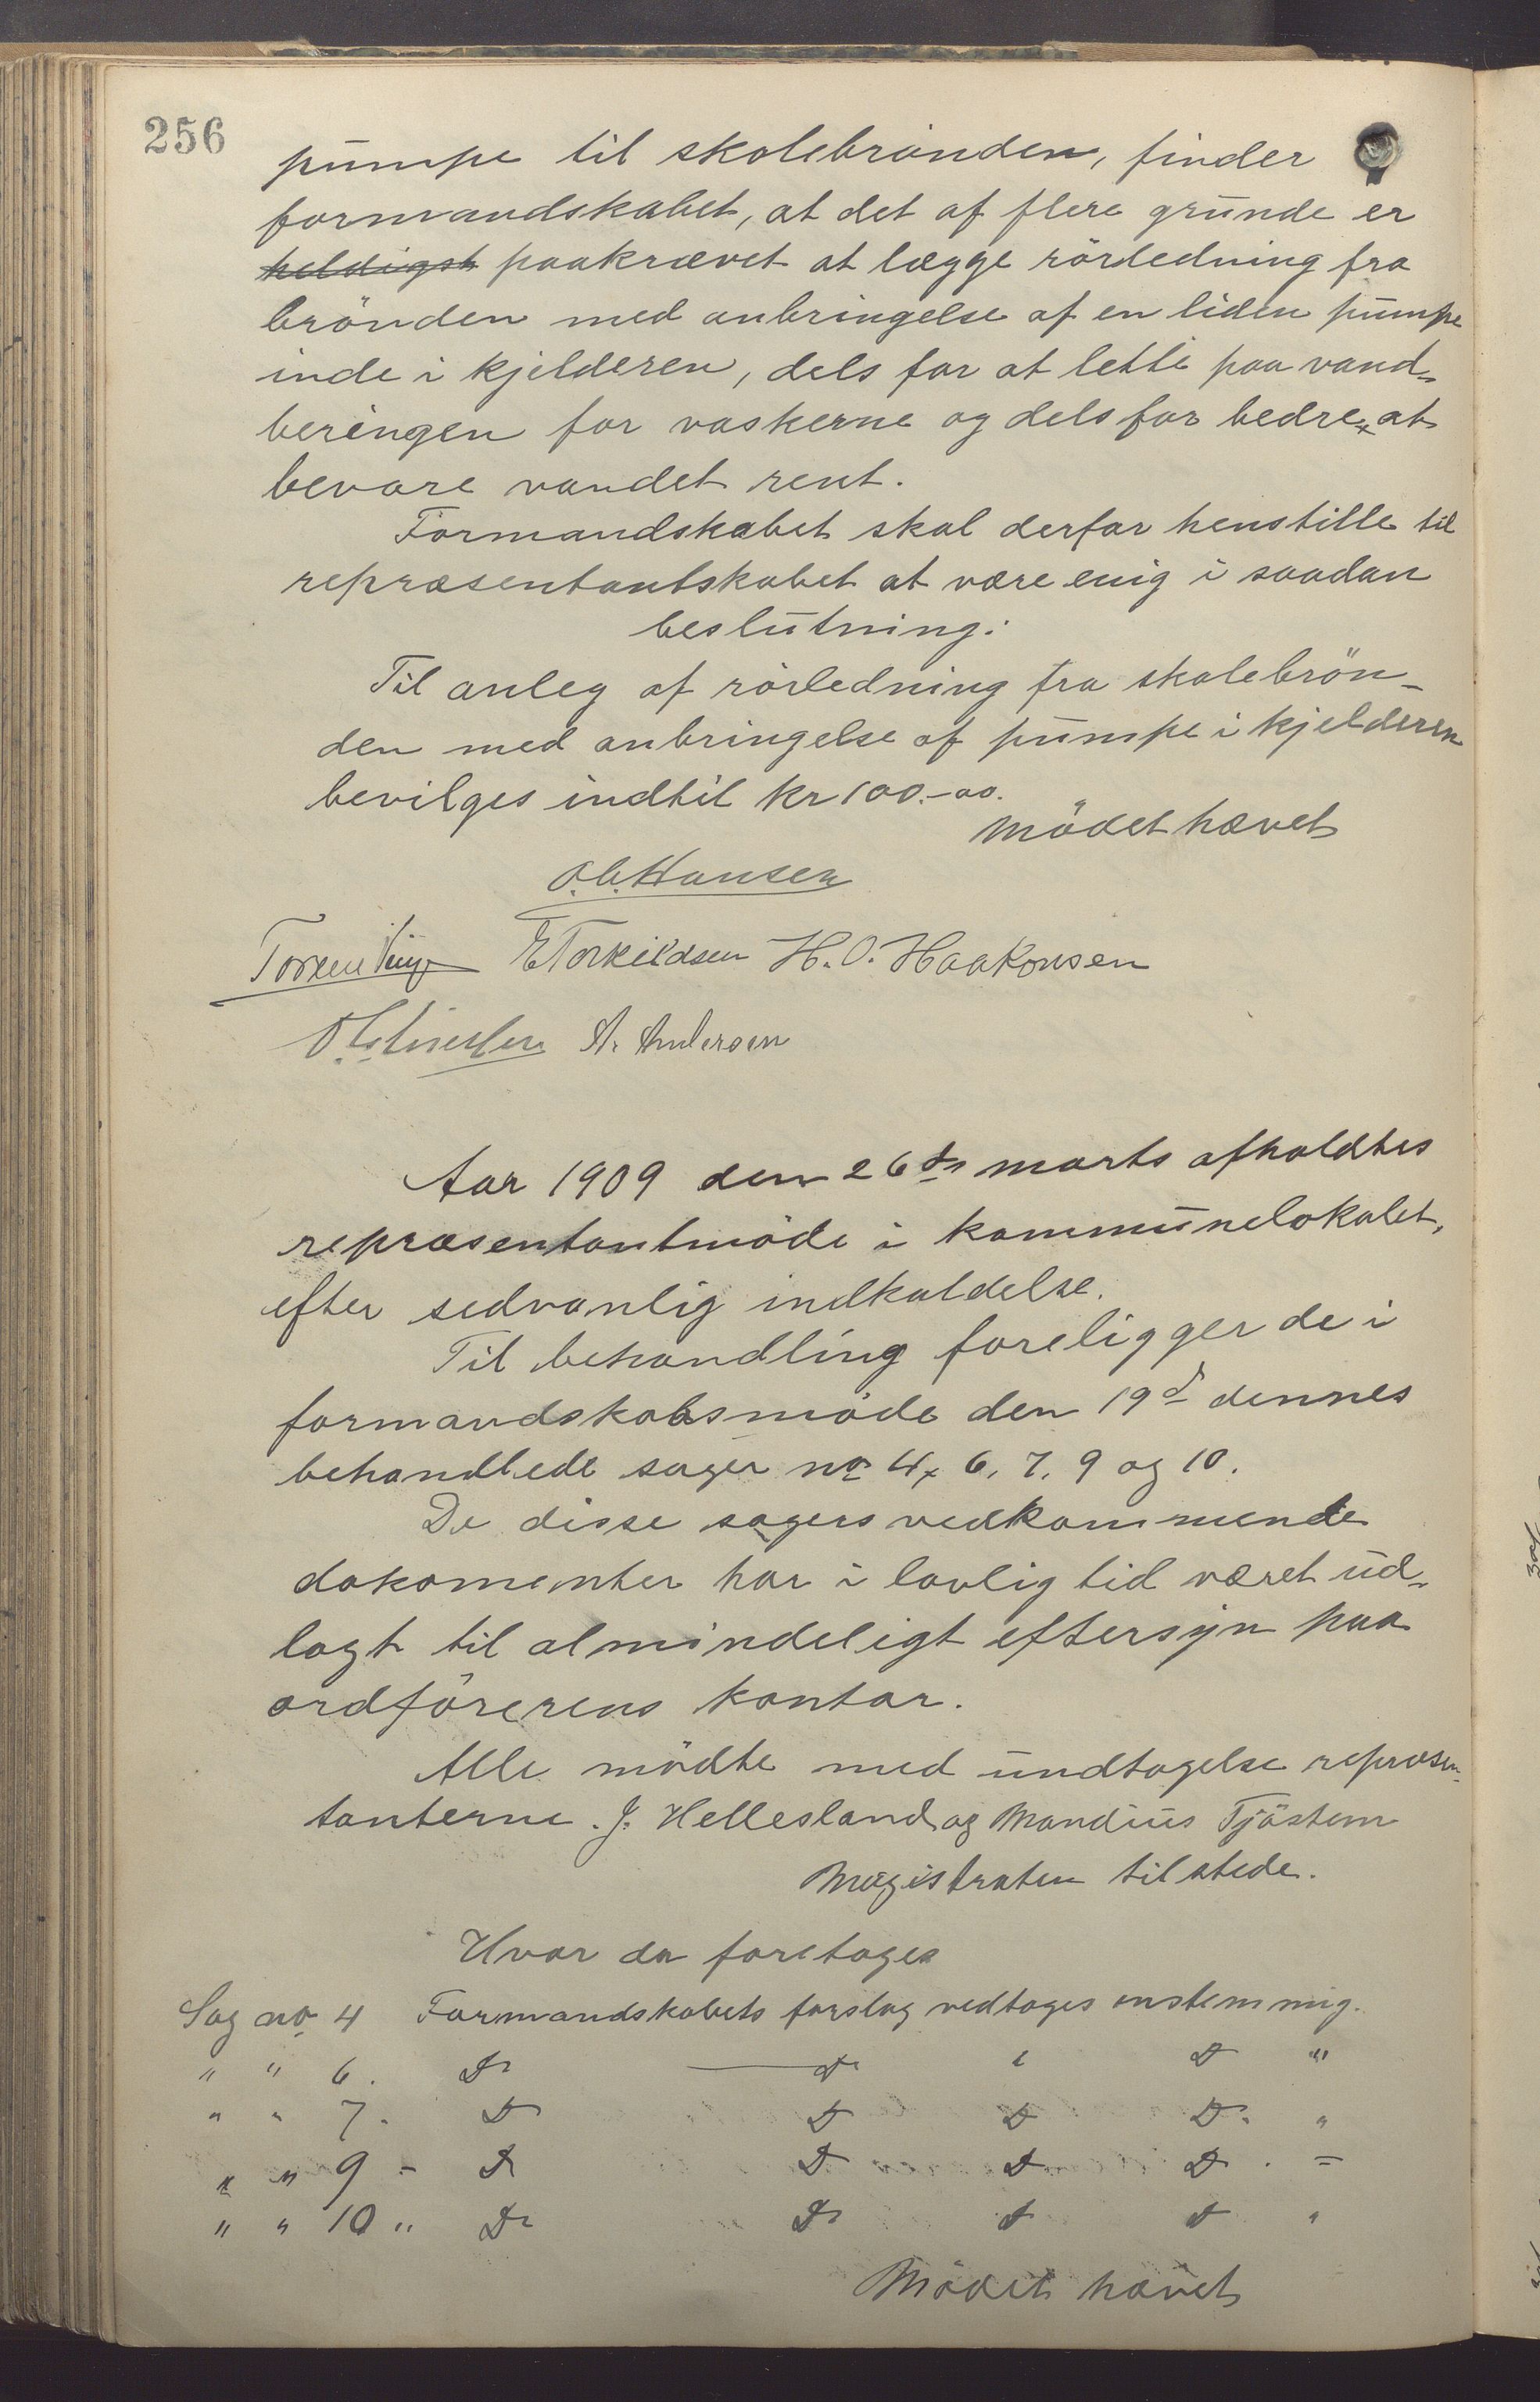 256
pumpe til skolebrønden, finder
formandskabet, at det af flere grunde er
heldigst paakrævet at lægge rörledning fra
brönden med anbringelse af en liden pumpe
inde i kjelderen, dels for at lette paa vand-
beringen for vaskerne og dels for bedre at
bevare vandet rent.
Formandskabet skal derfor henstille til
repræsentantskabet at være enig i saadan
beslutning:
Til anleg af rörledning fra skolebrön-
den med anbringelse af pumpe i kjelderen
bevilges indtil kr 100.-00.
Mödet hævet
O.C. Hansen
E Torkildsen H. O. Haakonsen
A. Andersen
Aar 1909 den 26de marts afholdtes
repræsentantmöde i kommunelokalet,
efter sedvanlig indkaldelse.
Til behandling foreligger de i
formandskabsmöde den 19d dennes
behandlede sager no 4, 6, 7, 9 og 10.
De disse sagers vedkommende
dokomenter har i lovlig tid været ud-
lagt til almindeligt eftersyn paa
ordförerens kontor.
Alle mödte med undtagelse repræsen-
tanterne J. Hellesland og Mandius Tjöstem
Magistraten tilstede.
Hvor da foretages
Sag no 4 Formandskabets forslag vedtages enstemmig.
" " 6. Do Do " Do "
" " 7. Do Do Do Do. "
" " 9 - Do Do Do Do. "
" " 10 " Do Do Do Do "
Mödet hævet